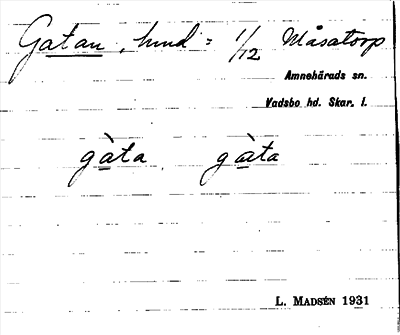 Gatan, hmd = 1/12 Måsatorp
Amnehärads sn.
Vadsbo hd. Skar. l.
gàta gàta
L. MADSÉN 1931